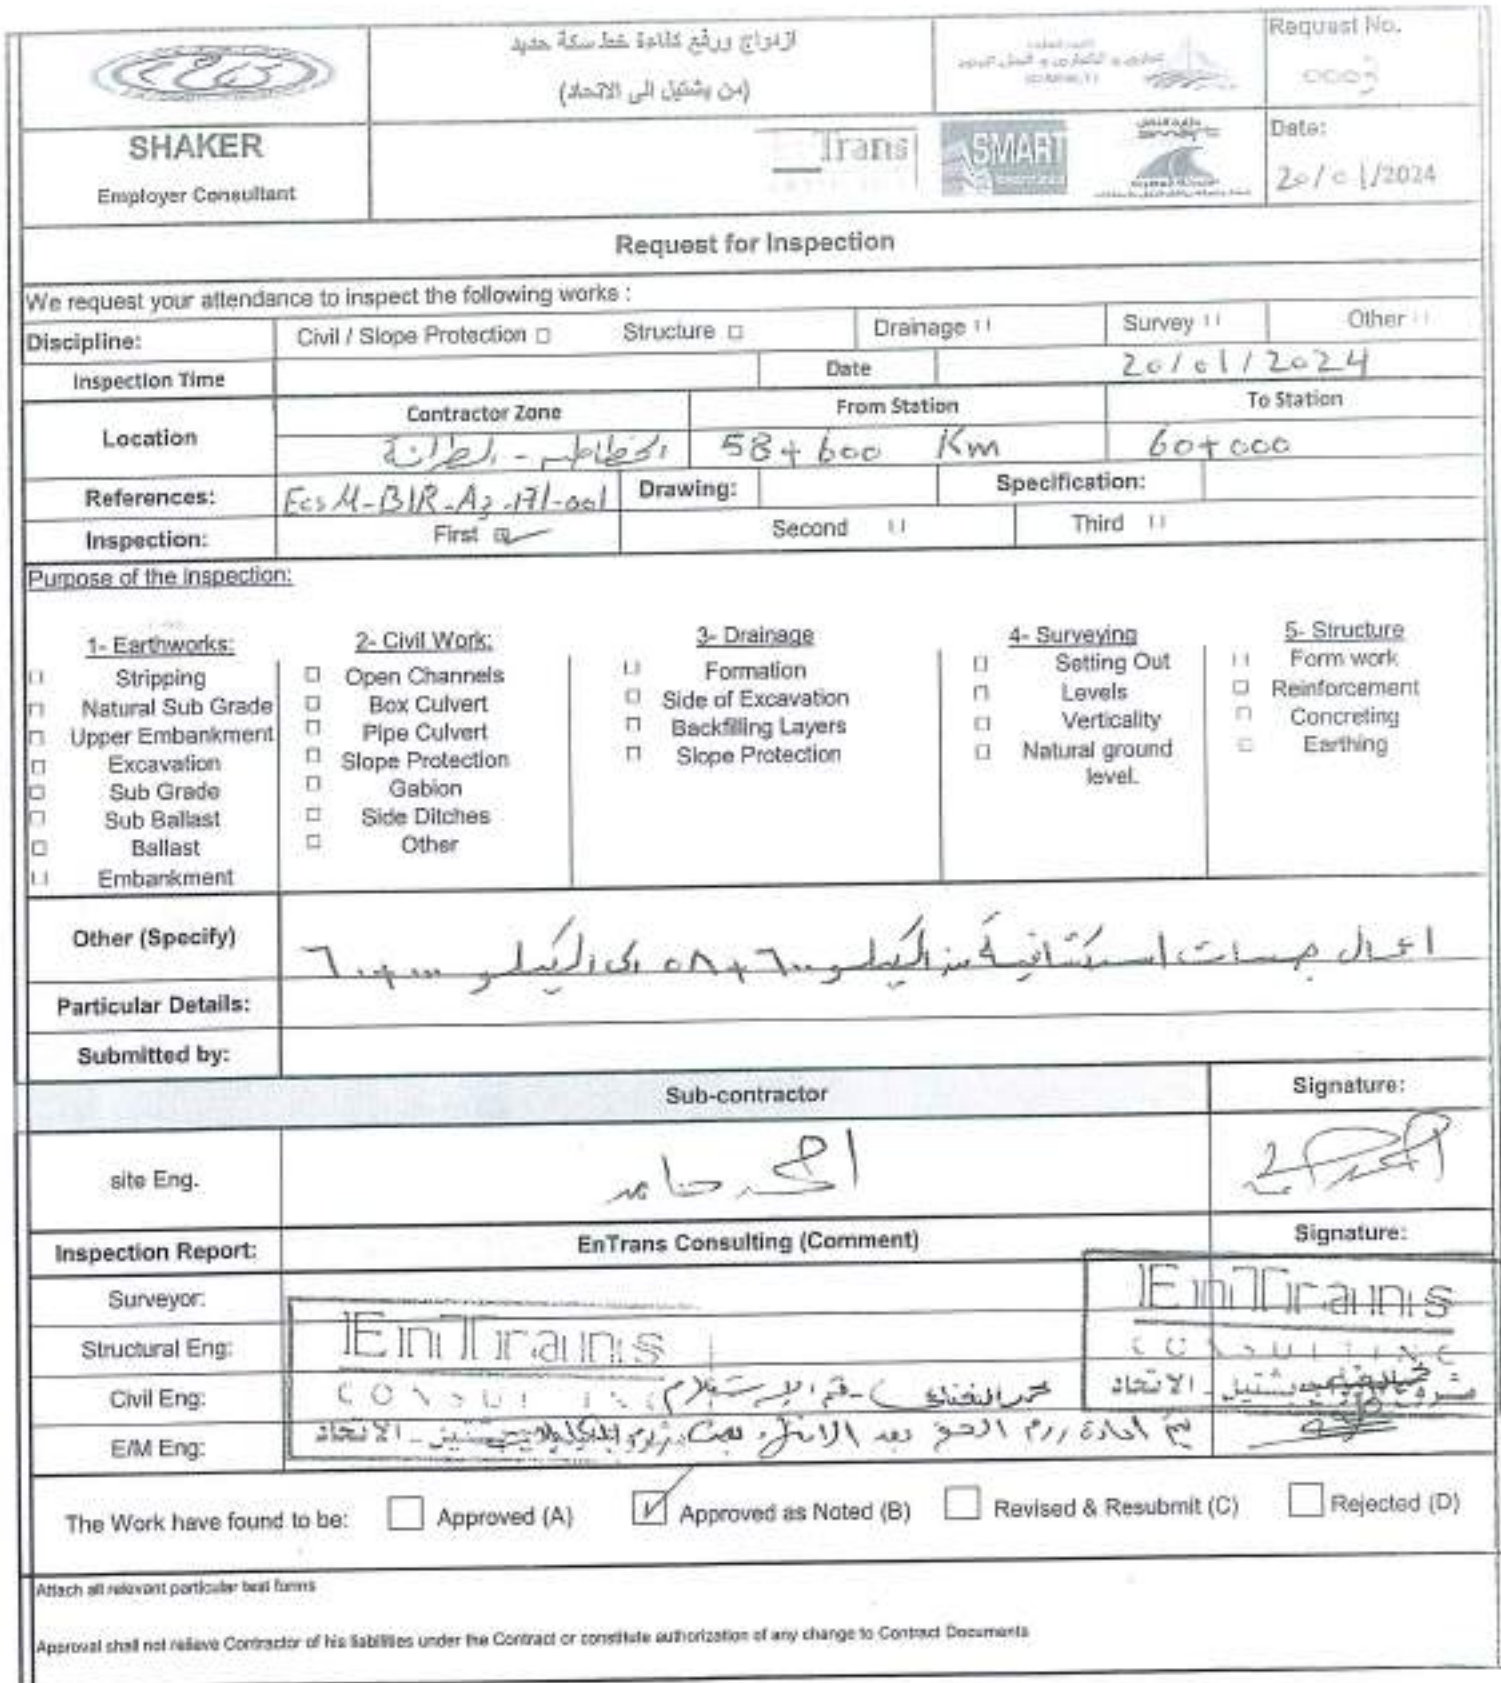 ازدواج ورفع كفاءة خط سكة حديد
(من بشتيل الى الاتحاد)
Request No.
0003
SHAKER
Employer Consultant
Trans
SMART
Date:
20/01/2024
Request for Inspection
We request your attendance to inspect the following works :
Discipline: Civil / Slope Protection Structure Drainage Survey Other
Inspection Time Date 20/01/2024
Location Contractor Zone From Station To Station
الخطاطبه - الطرانة 58+600 Km 60+000
References: Drawing: Specification:
Inspection: First Second Third
Purpose of the Inspection:
1- Earthworks:
Stripping
Natural Sub Grade
Upper Embankment
Excavation
Sub Grade
Sub Ballast
Ballast
Embankment
2- Civil Work:
Open Channels
Box Culvert
Pipe Culvert
Slope Protection
Gabion
Side Ditches
Other
3- Drainage
Formation
Side of Excavation
Backfilling Layers
Slope Protection
4- Surveying
Setting Out
Levels
Verticality
Natural ground
level.
5- Structure
Form work
Reinforcement
Concreting
Earthing
Other (Specify) اعمال جسات استكشافية من الكيلو ٦٠٠+٥٨ الى الكيلو ٠٠٠+٦٠
Particular Details:
Submitted by:
Sub-contractor Signature:
site Eng. احمد حامد
Inspection Report: EnTrans Consulting (Comment) Signature:
Surveyor:
Structural Eng:
Civil Eng:
E/M Eng:
EnTrans
CONSULTING
EnTrans
CONSULTING
The Work have found to be: Approved (A) Approved as Noted (B) Revised & Resubmit (C) Rejected (D)
Attach all relevant particular test forms
Approval shall not relieve Contractor of his liabilities under the Contract or constitute authorization of any change to Contract Documents